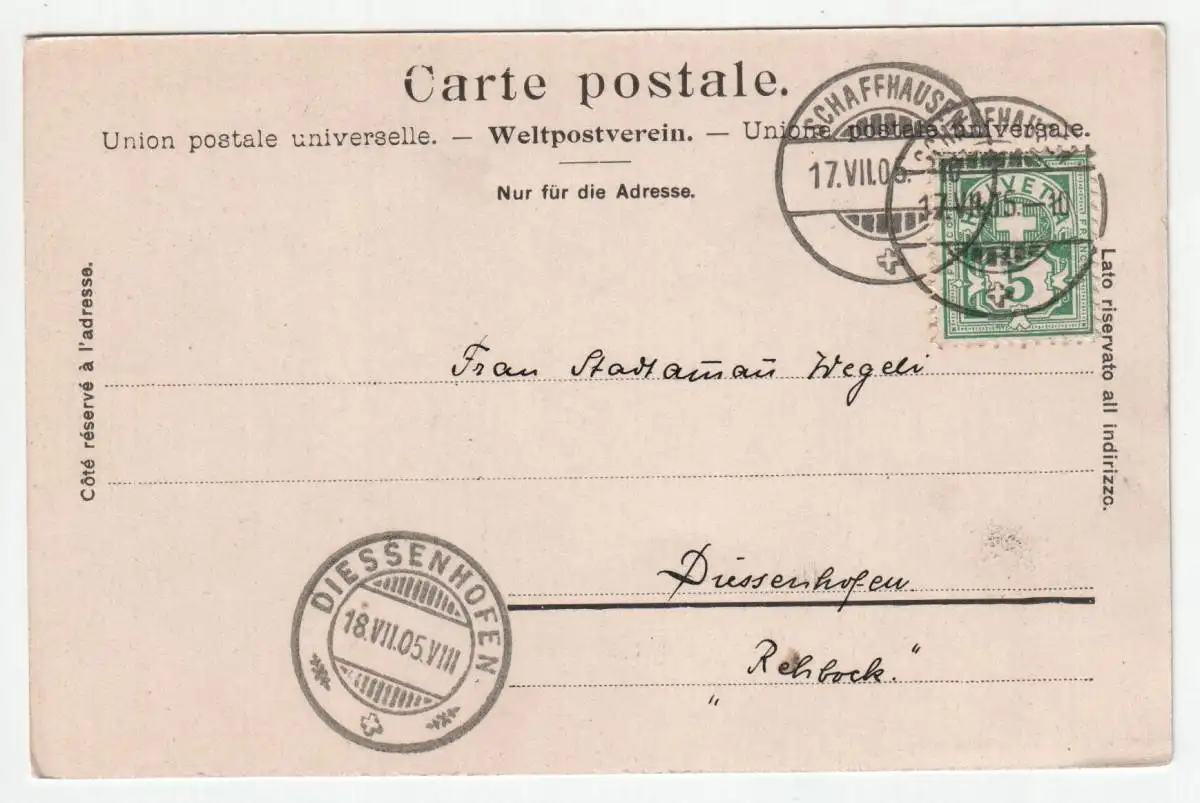 Carte postale.
Union postale universelle. — Weltpostverein. — Unione postale universale.
Nur für die Adresse.
SCHAFFHAUSEN
17.VII.05. 10
SCHAFFHAUSEN
17.VII.05. 10
HELVETIA
FRANCO
5
Côté réservé à l'adresse.
Lato riservato all indirizzo.
Frau Stadtam̅an̅ Wegeli
Diessenhofen
„Rehbock.“
DIESSENHOFEN.
18.VII.05.VIII